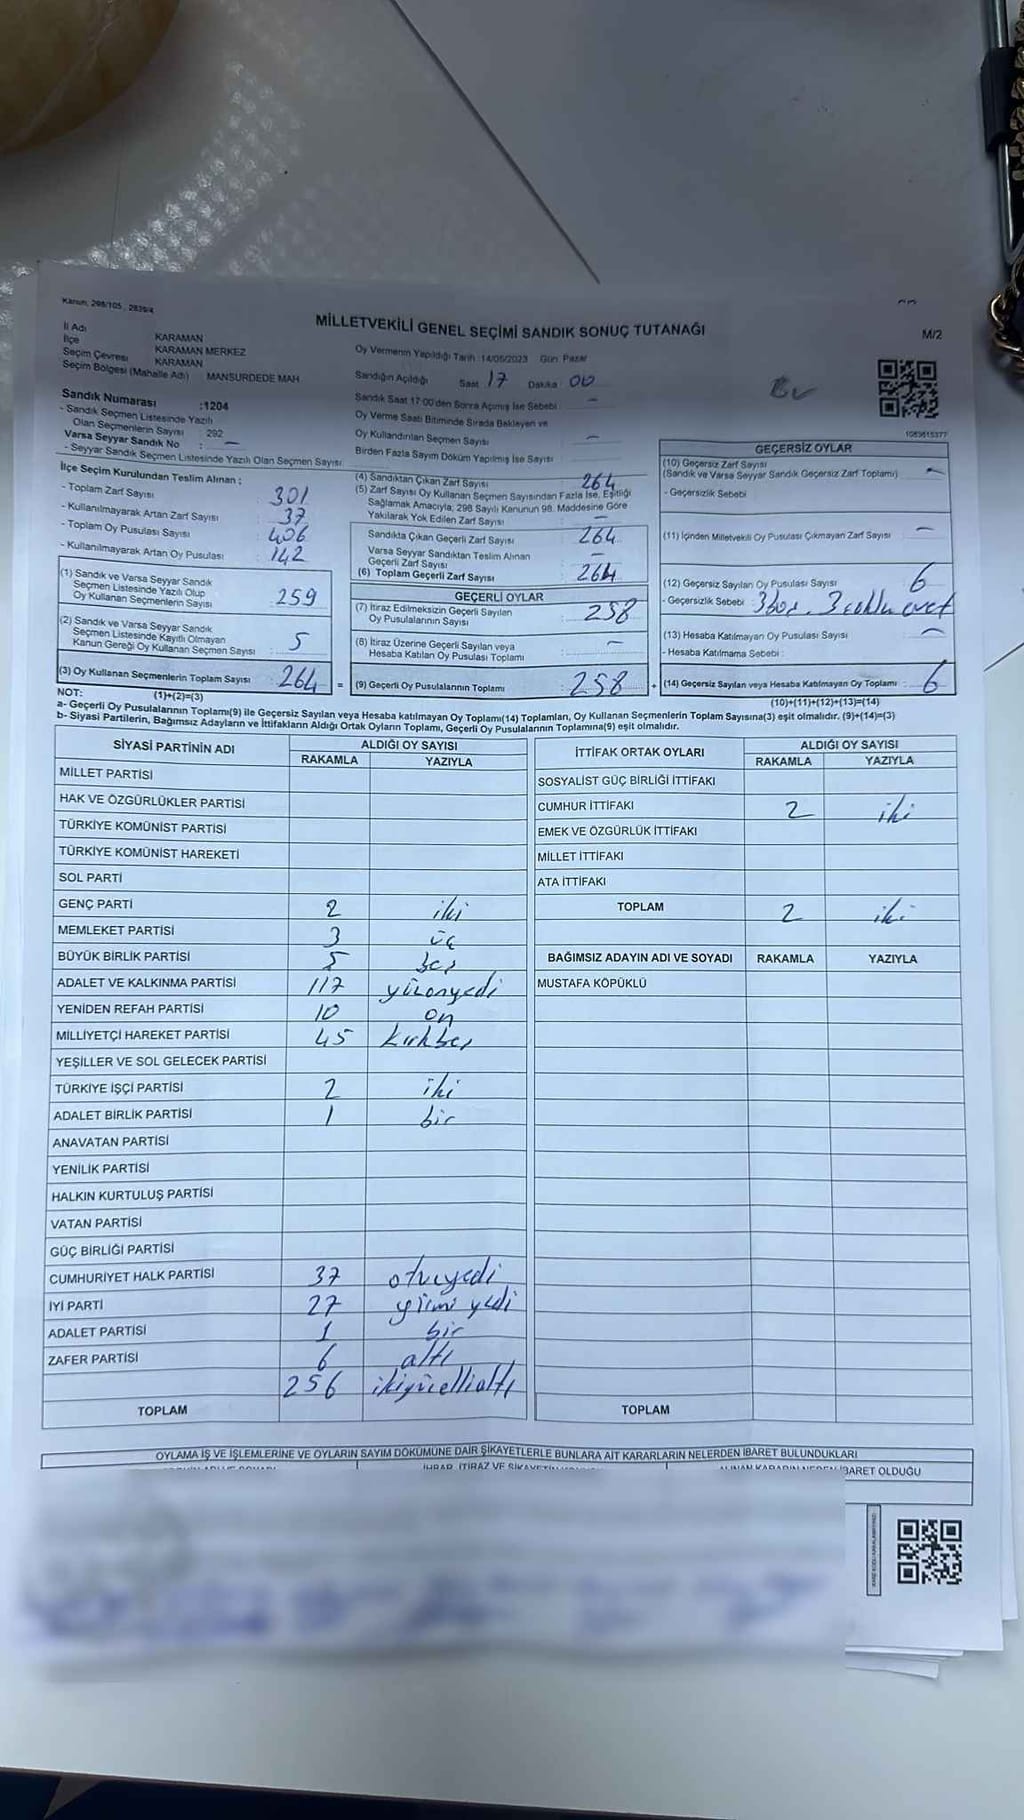 Kanun: 298/105 , 2839/4
MİLLETVEKİLİ GENEL SEÇİMİ SANDIK SONUÇ TUTANAĞI
M/2
İl Adı KARAMAN
İlçe KARAMAN MERKEZ
Seçim Çevresi KARAMAN
Seçim Bölgesi (Mahalle Adı) MANSURDEDE MAH
Sandık Numarası :1204
- Sandık Seçmen Listesinde Yazılı
Olan Seçmenlerin Sayısı : 292
Varsa Seyyar Sandık No : —
- Seyyar Sandık Seçmen Listesinde Yazılı Olan Seçmen Sayısı
Oy Vermenin Yapıldığı Tarih :14/05/2023 Gün: Pazar
Sandığın Açıldığı Saat 17 Dakika 00
Sandık Saat 17:00'den Sonra Açımış İse Sebebi : —
Oy Verme Saati Bitiminde Sırada Bekleyen ve
Oy Kullandırılan Seçmen Sayısı —
Birden Fazla Sayım Döküm Yapılmış İse Sayısı
1083615377
İlçe Seçim Kurulundan Teslim Alınan :
- Toplam Zarf Sayısı : 301
- Kullanılmayarak Artan Zarf Sayısı : 37
- Toplam Oy Pusulası Sayısı : 406
- Kullanılmayarak Artan Oy Pusulası : 142
(1) Sandık ve Varsa Seyyar Sandık
Seçmen Listesinde Yazılı Olup
Oy Kullanan Seçmenlerin Sayısı : 259
(2) Sandık ve Varsa Seyyar Sandık
Seçmen Listesinde Kayıtlı Olmayan
Kanun Gereği Oy Kullanan Seçmen Sayısı : 5
(3) Oy Kullanan Seçmenlerin Toplam Sayısı : 264 =
(1)+(2)=(3)
(4) Sandıktan Çıkan Zarf Sayısı : 264
(5) Zarf Sayısı Oy Kullanan Seçmen Sayısından Fazla İse, Eşitliği
Sağlamak Amacıyla; 298 Sayılı Kanunun 98. Maddesine Göre
Yakılarak Yok Edilen Zarf Sayısı : —
Sandıkta Çıkan Geçerli Zarf Sayısı : 264
Varsa Seyyar Sandıktan Teslim Alınan
Geçerli Zarf Sayısı : —
(6) Toplam Geçerli Zarf Sayısı : 264
GEÇERLİ OYLAR
(7) İtiraz Edilmeksizin Geçerli Sayılan
Oy Pusulalarının Sayısı : 258
(8) İtiraz Üzerine Geçerli Sayılan veya
Hesaba Katılan Oy Pusulası Toplamı : —
(9) Geçerli Oy Pusulalarının Toplamı : 258 +
GEÇERSİZ OYLAR
(10) Geçersiz Zarf Sayısı
(Sandık ve Varsa Seyyar Sandık Geçersiz Zarf Toplamı) : —
- Geçersizlik Sebebi
(11) İçinden Milletvekili Oy Pusulası Çıkmayan Zarf Sayısı : —
(12) Geçersiz Sayılan Oy Pusulası Sayısı : 6
- Geçersizlik Sebebi : 3 boş, 3 çoklu evet
(13) Hesaba Katılmayan Oy Pusulası Sayısı : —
- Hesaba Katılmama Sebebi :
(14) Geçersiz Sayılan veya Hesaba Katılmayan Oy Toplamı : 6
(10)+(11)+(12)+(13)=(14)
NOT:
a- Geçerli Oy Pusulalarının Toplamı(9) ile Geçersiz Sayılan veya Hesaba katılmayan Oy Toplamı(14) Toplamları, Oy Kullanan Seçmenlerin Toplam Sayısına(3) eşit olmalıdır. (9)+(14)=(3)
b- Siyasi Partilerin, Bağımsız Adayların ve İttifakların Aldığı Ortak Oyların Toplamı, Geçerli Oy Pusulalarının Toplamına(9) eşit olmalıdır.
SİYASİ PARTİNİN ADI ALDIĞI OY SAYISI
RAKAMLA YAZIYLA
MİLLET PARTİSİ
HAK VE ÖZGÜRLÜKLER PARTİSİ
TÜRKİYE KOMÜNİST PARTİSİ
TÜRKİYE KOMÜNİST HAREKETİ
SOL PARTİ
GENÇ PARTİ 2 iki
MEMLEKET PARTİSİ 3 üç
BÜYÜK BİRLİK PARTİSİ 5 beş
ADALET VE KALKINMA PARTİSİ 117 yüzonyedi
YENİDEN REFAH PARTİSİ 10 on
MİLLİYETÇİ HAREKET PARTİSİ 45 kırkbeş
YEŞİLLER VE SOL GELECEK PARTİSİ
TÜRKİYE İŞÇİ PARTİSİ 2 iki
ADALET BİRLİK PARTİSİ 1 bir
ANAVATAN PARTİSİ
YENİLİK PARTİSİ
HALKIN KURTULUŞ PARTİSİ
VATAN PARTİSİ
GÜÇ BİRLİĞİ PARTİSİ
CUMHURİYET HALK PARTİSİ 37 otuzyedi
İYİ PARTİ 27 yirmi yedi
ADALET PARTİSİ 1 bir
ZAFER PARTİSİ 6 altı
256 ikiyüzellialtı
TOPLAM
İTTİFAK ORTAK OYLARI ALDIĞI OY SAYISI
RAKAMLA YAZIYLA
SOSYALİST GÜÇ BİRLİĞİ İTTİFAKI
CUMHUR İTTİFAKI 2 iki
EMEK VE ÖZGÜRLÜK İTTİFAKI
MİLLET İTTİFAKI
ATA İTTİFAKI
TOPLAM 2 iki
BAĞIMSIZ ADAYIN ADI VE SOYADI RAKAMLA YAZIYLA
MUSTAFA KÖPÜKLÜ
TOPLAM
OYLAMA İŞ VE İŞLEMLERİNE VE OYLARIN SAYIM DÖKÜMÜNE DAİR ŞİKAYETLERLE BUNLARA AİT KARARLARIN NELERDEN İBARET BULUNDUKLARI
İHBAR, İTİRAZ VE ŞİKAYETİN
ALINAN KARARIN NEDEN İBARET OLDUĞU